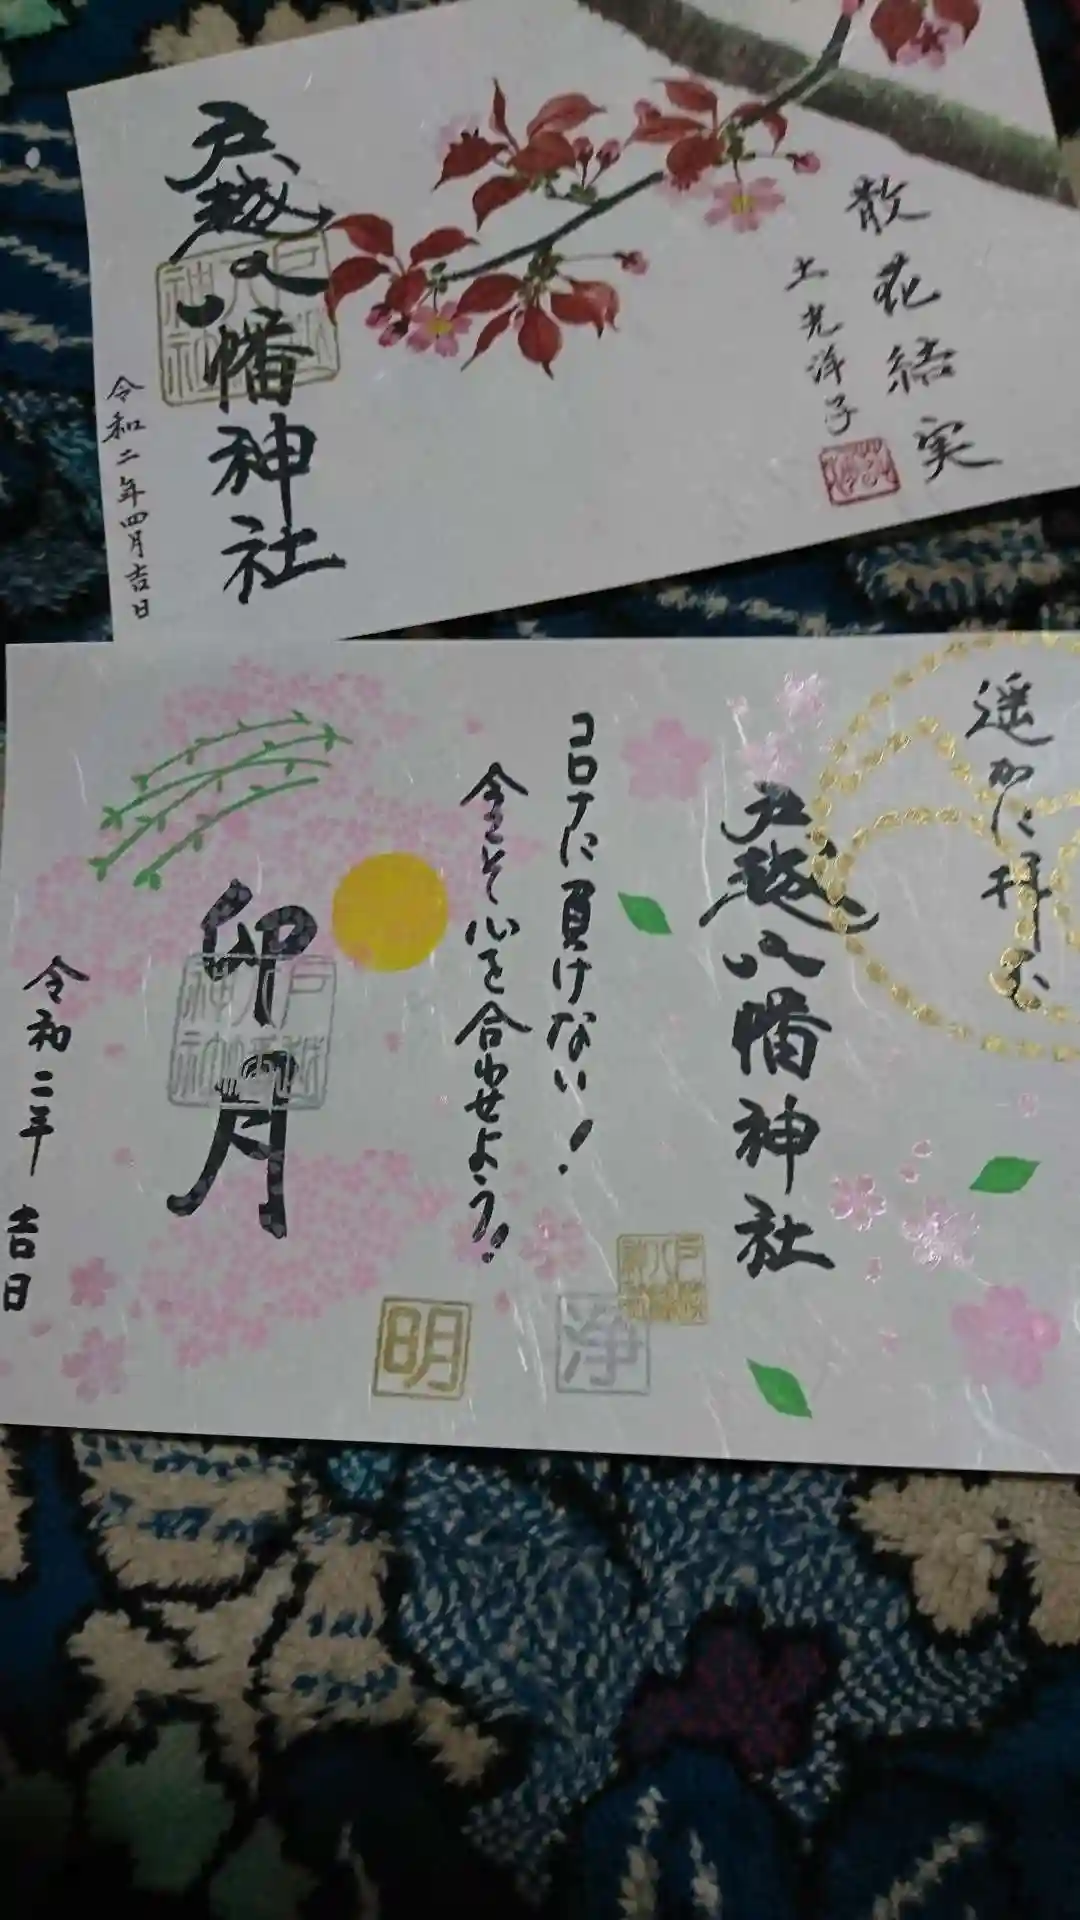 散花結実
土光洋子
戸越八幡神社
令和二年四月吉日
遥かに拝む
戸越八幡神社
コロナに負けない！
今こそ心を合わせよう！
卯月
令和二年 吉日
戸越八幡神社
浄
明